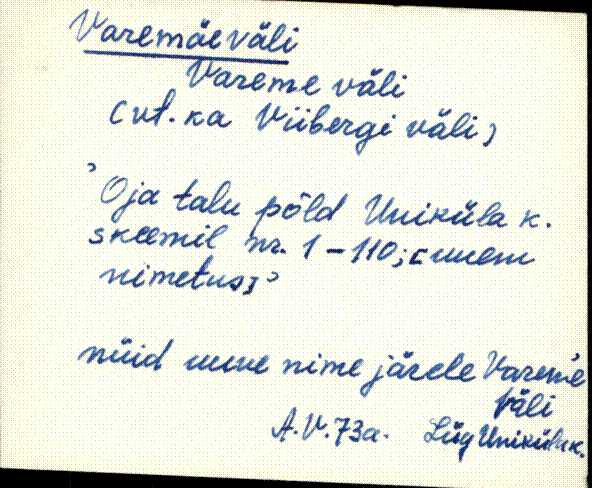 Varemäeväli
Vareme väli
(vt. ka Viibergi väli)
'Oja talu põld Uniküla k.
skeemil nr. 1-110; [uuem
nimetus]'
nüüd uue nime järele Vareme
väli
A.V. 73a. Lüg Uniküla k.